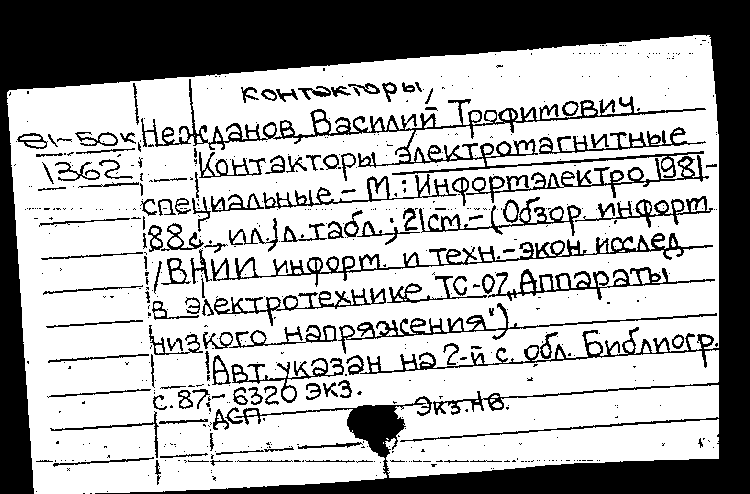 контакторы,
81-50к Неожданов, Василий Трофимович.
1362 Контакторы электромагнитные
специальные.- М.: Информэлектро, 1981.-
88с., ил., л. табл.; 21см.- (Обзор. информ.
/ВНИИ информ. и техн.-экон. исслед.
в электротехнике. ТС-07 „Аппараты
низкого напряжения").
Авт. указан на 2-й с. обл. Библиогр.
с. 87.- 6320 экз.
ДСП. Экз. НВ.